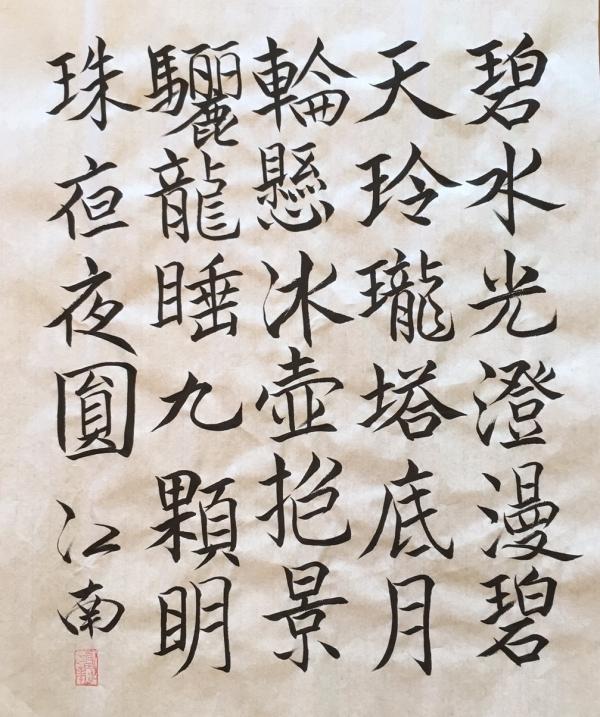 碧水光澄漫碧
天玲瓏塔底月
輪懸冰壺抱景
驪龍睡九顆明
珠亱夜圓
江南